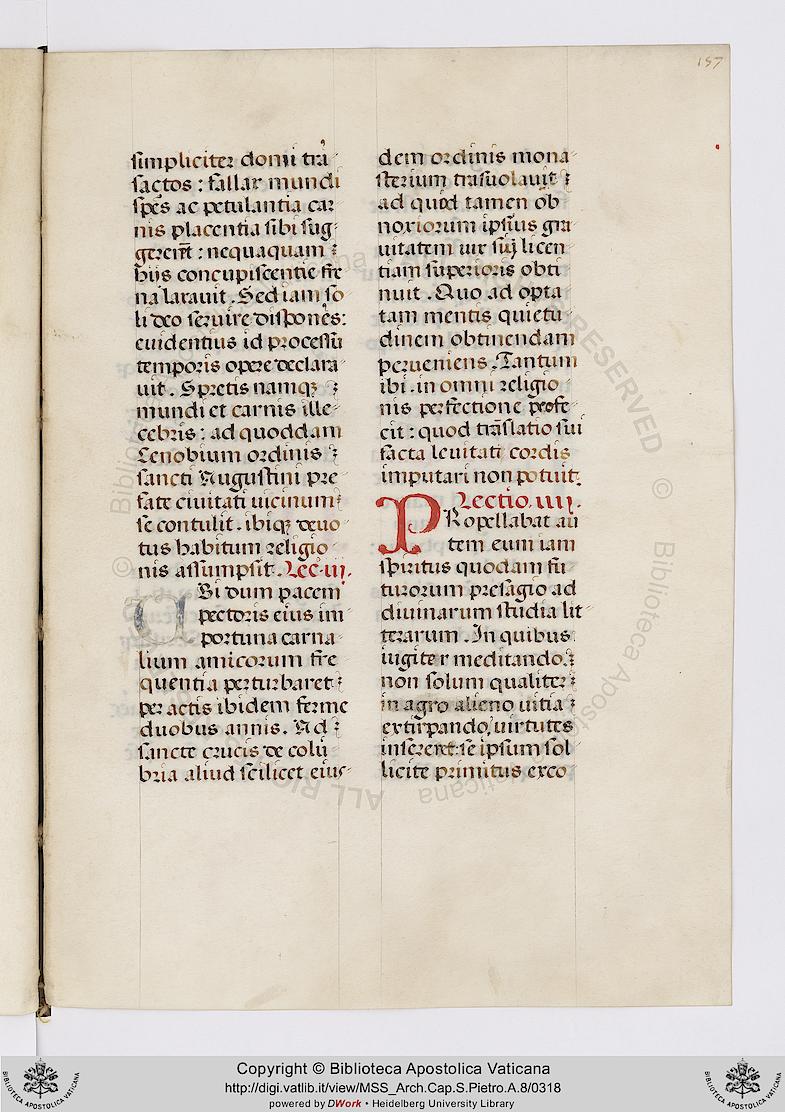 157
simpliciter domi trā
sactos : fallax mundi
spes ac petulantia car
nis placentia sibi sug
gererēt : nequaquam
hijs concupiscentie fre
na laxauit . Sed iam so
li deo seruire disponēs:
euidentius id processu
temporis opere declara
uit . Spretis namqꝫ
mundi et carnis ille
cebris : ad quoddam
Cenobium ordinis
sancti Augustini pre
fate ciuitati uicinum
se contulit . ibiqꝫ deuo
tus habitum religio
nis assumpsit . Lec . iij .
UBi dum pacem
pectoris eius im
portuna carna
lium amicorum fre
quentia perturbaret
per actis ibidem ferme
duobus annis . Ad
sancte crucis de colū
bria aliud scilicet eius
dem ordinis mona
sterium trāsuolauit
ad quod tamen ob
noxiorum ipsius gra
uitatem uix suj licen
tiam superioris obti
nuit . Quo ad opta
tam mentis quietu
dinem obtinendam
perueniens . Tantum
ibi . in omni religio
nis perfectione profe
cit : quod trāslatio sui
facta leuitati cordis
imputari non potuit .
Lectio . iiij .
PRopellabat au
tem eum iam
spiritus quodam fu
turorum presagio ad
diuinarum studia lit
terarum . In quibus
iugiter meditando .
non solum qualiter
in agro alieno uitia
extirpando / uirtutes
insereret : se ipsum sol
licite primitus exco
Copyright © Biblioteca Apostolica Vaticana
http://digi.vatlib.it/view/MSS_Arch.Cap.S.Pietro.A.8/0318
powered by DWork • Heidelberg University Library